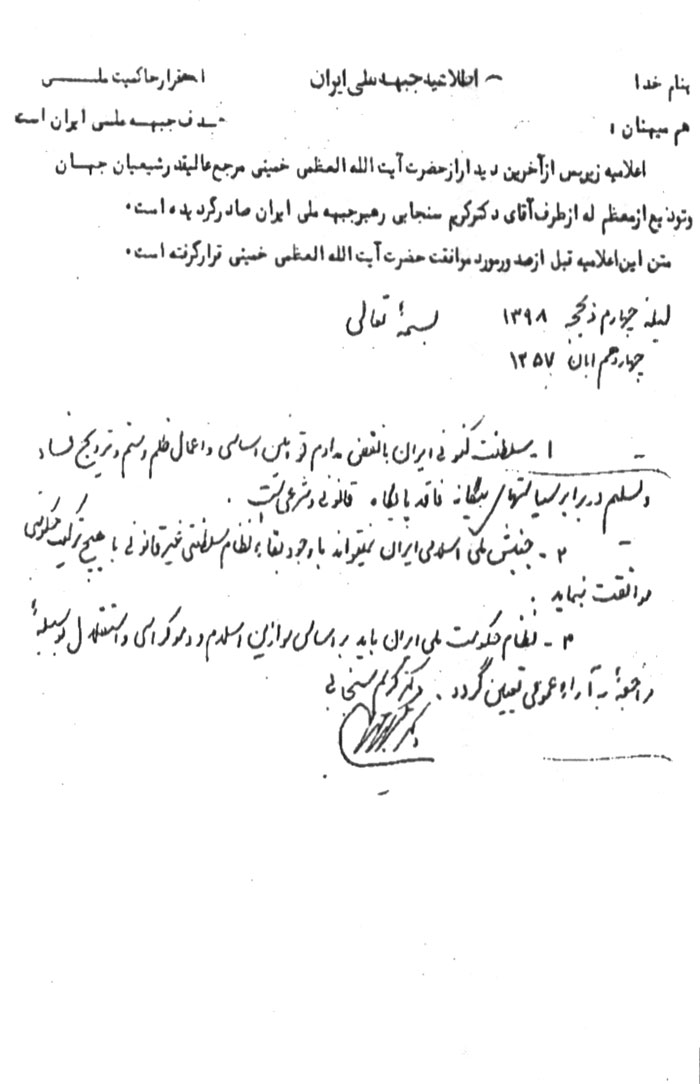 بنام خدا اطلاعیه جبهه ملی ایران استقرار حاکمیت ملی
هم میهنان : هدف جبهه ملی ایران است
اعلامیه زیر پس از آخرین دیدار از حضرت آیت الله العظمی خمینی مرجع عالیقدر شیعیان جهان
وتودیع از معظم له از طرف آقای دکتر کریم سنجابی رهبر جبهه ملی ایران صادر گردیده است .
متن این اعلامیه قبل از صدور مورد موافقت حضرت آیت الله العظمی خمینی قرار گرفته است .
بسمه تعالی
لیله چهارم ذیحجه ۱۳۹۸
چهاردهم ابان ۱۳۵۷
۱ - سلطنت کنونی ایران با نقض مداوم قوانین اساسی و اعمال ظلم و ستم و ترویج فساد
و تسلیم در برابر سیاستهای بیگانه فاقد پایگاه قانونی و شرعی است .
۲ - جنبش ملی اسلامی ایران نمیتواند با وجود بقاء نظام سلطنتی غیر قانونی با هیچ ترکیب حکومتی
موافقت نماید .
۳ - نظام حکومت ملی ایران باید بر اساس موازین اسلام و دموکراسی و استقلال بوسیلهٔ
مراجعهٔ به آراء عمومی تعیین گردد . دکتر کریم سنجابی